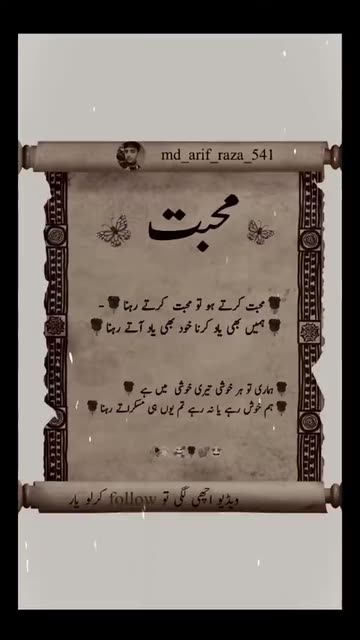 md_arif_raza_541
محبت
محبت کرتے ہو تو محبت کرتے رہنا -
ہمیں بھی یاد کرنا خود بھی یاد آتے رہنا
ہماری تو ہر خوشی تیری خوشی میں ہے
ہم خوش رہے یا نہ رہے تم یوں ہی مسکراتے رہنا
ویڈیو اچھی لگی تو follow کرلو یار